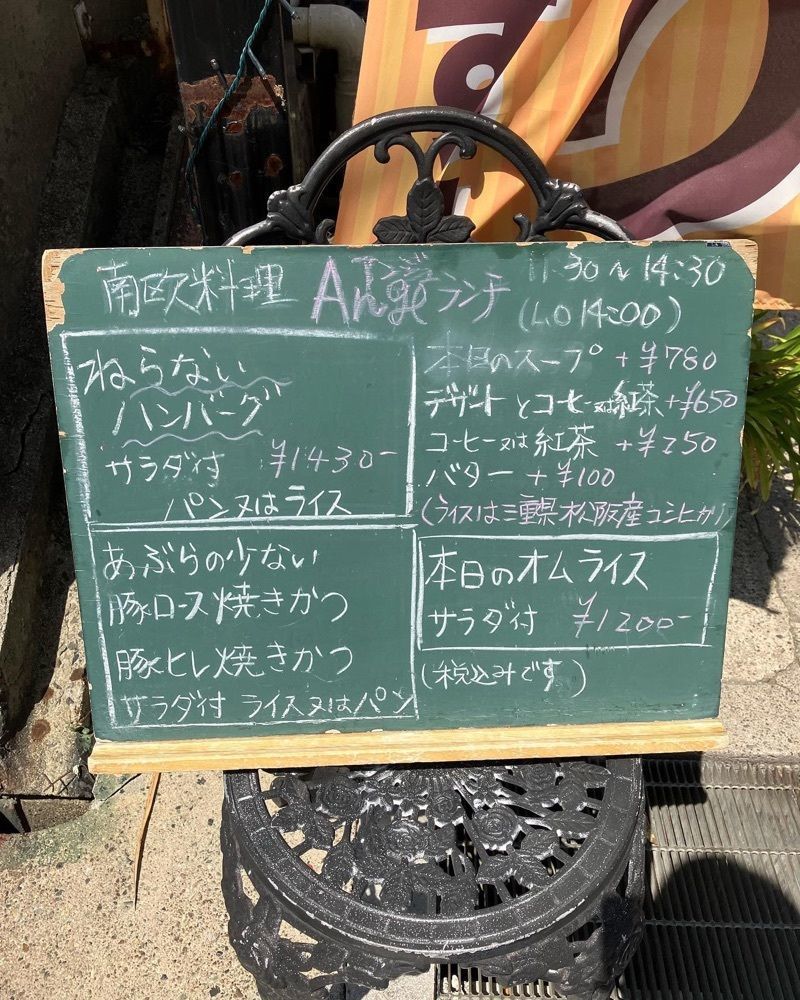 南欧料理 Ange ランチ 11:30～14:30
(L.O 14:00)
ねらない
ハンバーグ
サラダ付 ¥1430-
パン又はライス
あぶらの少ない
豚ロース焼きかつ
豚ヒレ焼きかつ
サラダ付 ライス又はパン
本日のスープ +¥780
デザートとコーヒー又は紅茶+¥650
コーヒー又は紅茶 +¥250
バター +¥100
(ライスは三重県松阪産コシヒカリ)
本日のオムライス
サラダ付 ¥1200-
(税込みです)